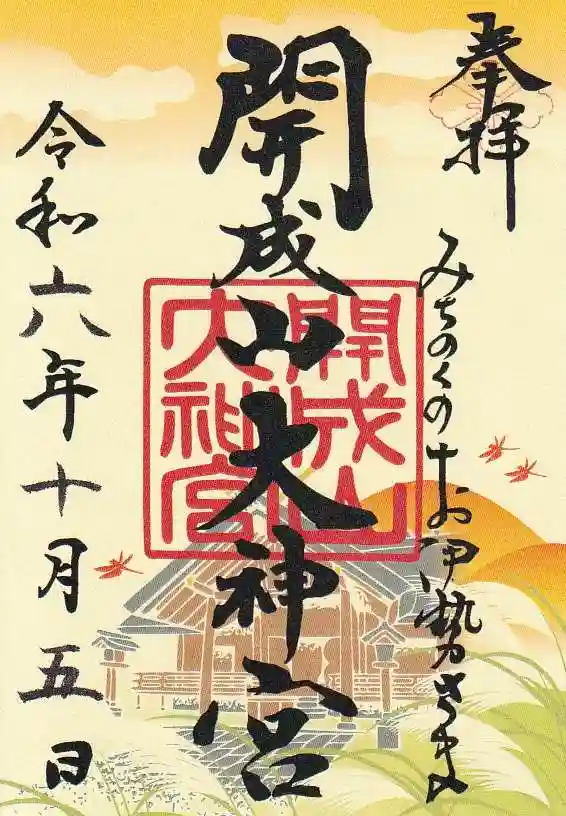 奉拝
みちのくのお伊勢さま
開成山大神宮
開成山
大神宮
令和六年十月五日